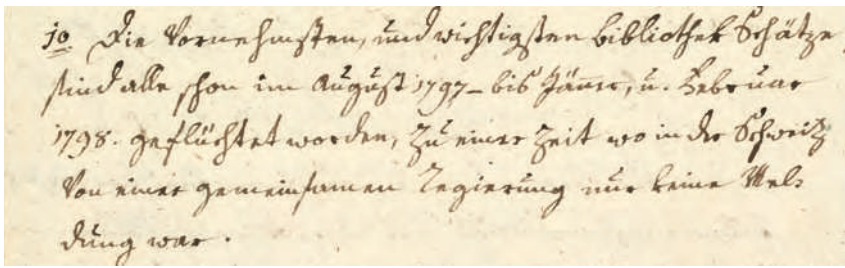 1o. Die Vornehmsten, und wichtigsten Bibliothek Schätze
sind alle schon im August 1797 – bis Jänner, u. Februar
1798. geflüchtet worden, zu einer Zeit wo in der Schweitz
Von einer gemeinsamen Regierung nur keine Mel-
dung war.